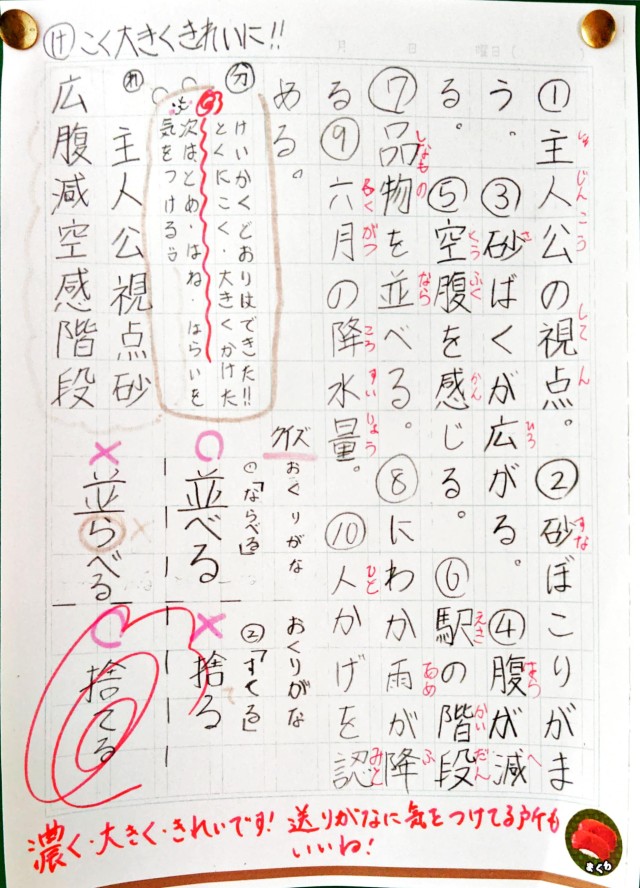 け こく大きくきれいに!!
月 日 曜日( )
①主人公の視点。②砂ぼこりがま
しゅじんこう してん すな
う。③砂ばくが広がる。④腹が減
さ ひろ はら へ
る。⑤空腹を感じる。⑥駅の階段
くうふく かん えき かいだん
⑦品物を並べる。⑧にわか雨が降
しなもの なら あめ ふ
る⑨六月の降水量。⑩人かげを認
ろくがつ こうすいりょう ひと みと
める。
分
けいかくどおりはできた!!
とくにこく・大きくかけた
次はとめ・はね・はらいを
気をつける
れ
主人公視点砂
広腹減空感階段
クイズ
おくりがな
①「ならべる」
○並べる
×並らべる
おくりがな
②「すてる」
×捨る
○捨てる
濃く・大きく・きれいです! 送りがなに気をつけてる所も
いいね!